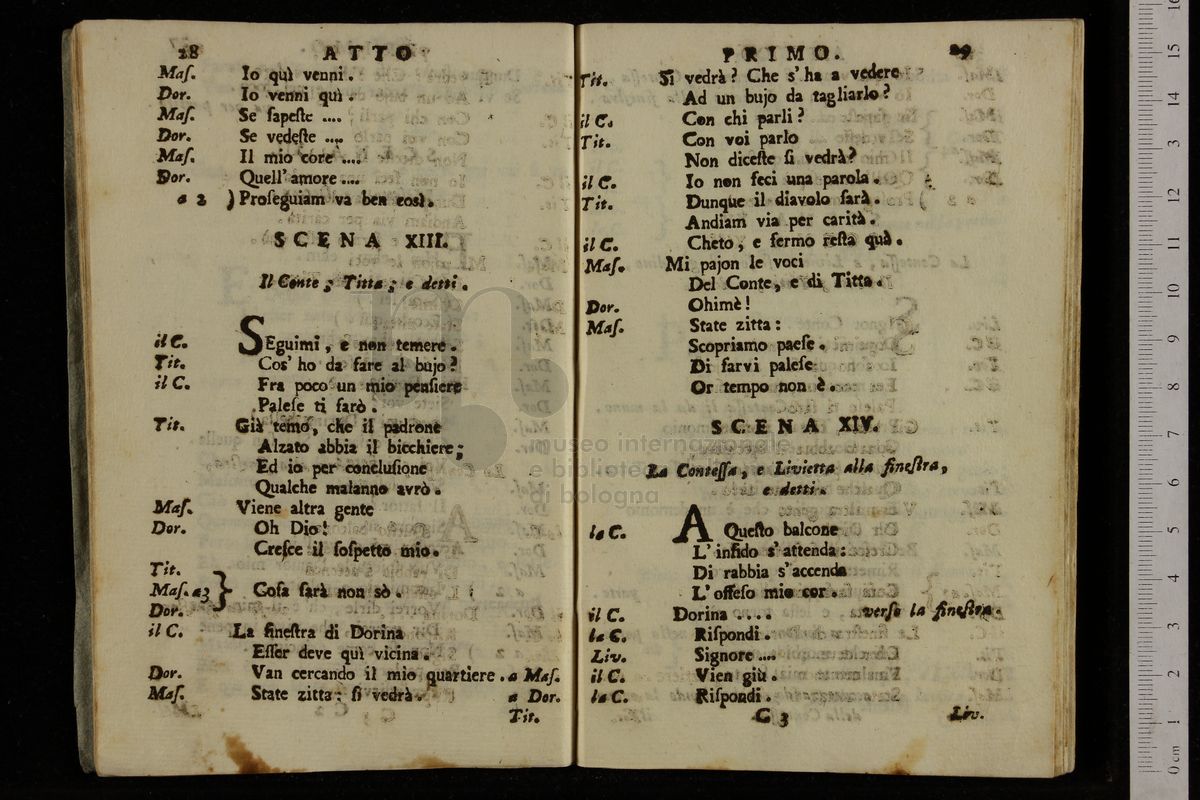 28 ATTO
Maſ. Io quì venni.
Dor. Io venni quì.
Maſ. Se ſapeſte ....
Dor. Se vedeſte ....
Maſ. Il mio core ....
Dor. Quell' amore ....
a 2 ) Proſeguiam va ben così.
SCENA XIII.
Il Conte, Titta, e detti.
il C. SEguimi, e non temere.
Tit. Cos' ho da fare al bujo?
il C. Fra poco un mio penſiere
Paleſe ti farò.
Tit. Già temo, che il padrone
Alzato abbia il bicchiere;
Ed io per concluſione
Qualche malanno avrò.
Maſ. Viene altra gente
Dor. Oh Dio!
Creſce il ſoſpetto mio.
Tit.
Maſ. a3 } Coſa farà non sò.
Dor.
il C. La fineſtra di Dorina
Eſſer deve quì vicina.
Dor. Van cercando il mio quartiere. a Maſ.
Maſ. State zitta: ſi vedrà. a Dor.
Tit.
PRIMO. 29
Tit. Si vedrà? Che s' ha a vedere
Ad un bujo da tagliarlo?
il C. Con chi parli?
Tit. Con voi parlo
Non diceſte ſi vedrà?
il C. Io non feci una parola.
Tit. Dunque il diavolo farà.
Andiam via per carità.
il C. Cheto, e fermo reſta quà.
Maſ. Mi pajon le voci
Del Conte, e di Titta.
Dor. Ohimè!
Maſ. State zitta:
Scopriamo paeſe.
Di farvi paleſe
Or tempo non è.
SCENA XIV.
La Conteſſa, e Livietta alla fineſtra,
e detti.
la C. A Queſto balcone
L' infido s' attenda:
Di rabbia s' accenda
L' offeſo mio cor.
il C. Dorina .... verſo la fineſtra.
la C. Riſpondi.
Liv. Signore ....
il C. Vien giù.
la C. Riſpondi.
C 3 Liv.
museo internazionale
e biblioteca
di bologna
0 cm 1 2 3 4 5 6 7 8 9 10 11 12 13 14 15 16